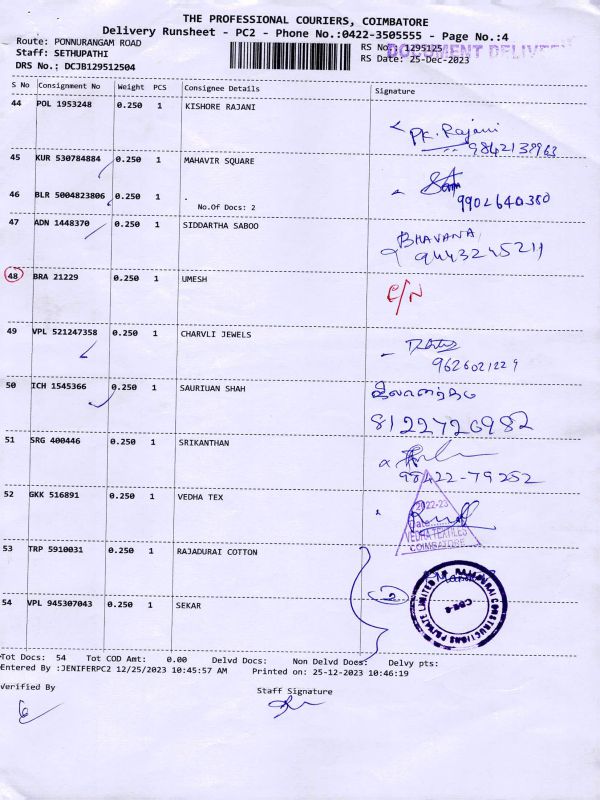 THE PROFESSIONAL COURIERS, COIMBATORE
Delivery Runsheet - PC2 - Phone No.:0422-3505555 - Page No.:4
Route: PONNURANGAM ROAD
Staff: SETHUPATHI
DRS No.: DCJB129512504
RS No.: 1295125
DOCUMENT DELIVERY
RS Date: 25-Dec-2023
S No Consignment No Weight PCS Consignee Details Signature
44 POL 1953248 0.250 1 KISHORE RAJANI
PK. Rajani
9842138963
45 KUR 530784884 0.250 1 MAHAVIR SQUARE
46 BLR 5004823806 0.250 1 .
No.Of Docs: 2
9902640380
47 ADN 1448370 0.250 1 SIDDARTHA SABOO
BHAVANA
9443245211
48 BRA 21229 0.250 1 UMESH
C/N
49 VPL 521247358 0.250 1 CHARVLI JEWELS
9626021229
50 ICH 1545366 0.250 1 SAURIUAN SHAH
8122720982
51 SRG 400446 0.250 1 SRIKANTHAN
98422-79252
52 GKK 516891 0.250 1 VEDHA TEX
2022-23
Date:
VEDHA TEXTILES
COIMBATORE
53 TRP 5910031 0.250 1 RAJADURAI COTTON
2
54 VPL 945307043 0.250 1 SEKAR
CONSTRUCTIONS PRIVATE LIMITED
Tot Docs: 54 Tot COD Amt: 0.00 Delvd Docs: Non Delvd Docs: Delvy pts:
Entered By :JENIFERPC2 12/25/2023 10:45:57 AM Printed on: 25-12-2023 10:46:19
Verified By
Staff Signature